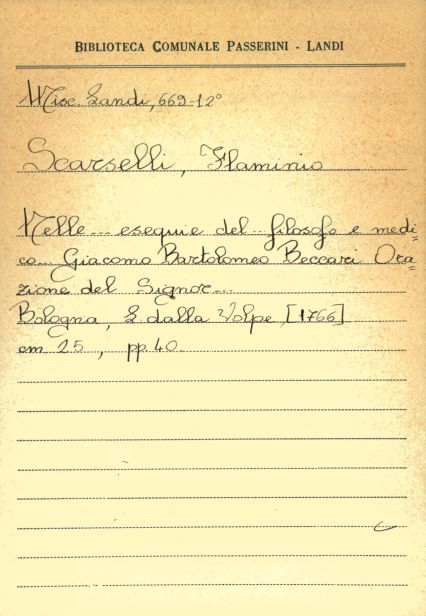 BIBLIOTECA COMUNALE PASSERINI - LANDI
Misc. Landi, 669-12°
Scarselli, Flaminio
Nelle... esequie del.. filosofo e medi=
co... Giacomo Bartolomeo Beccari Ora=
zione del Signor...
Bologna, L dalla Volpe, [1766]
cm 25, pp. 40.